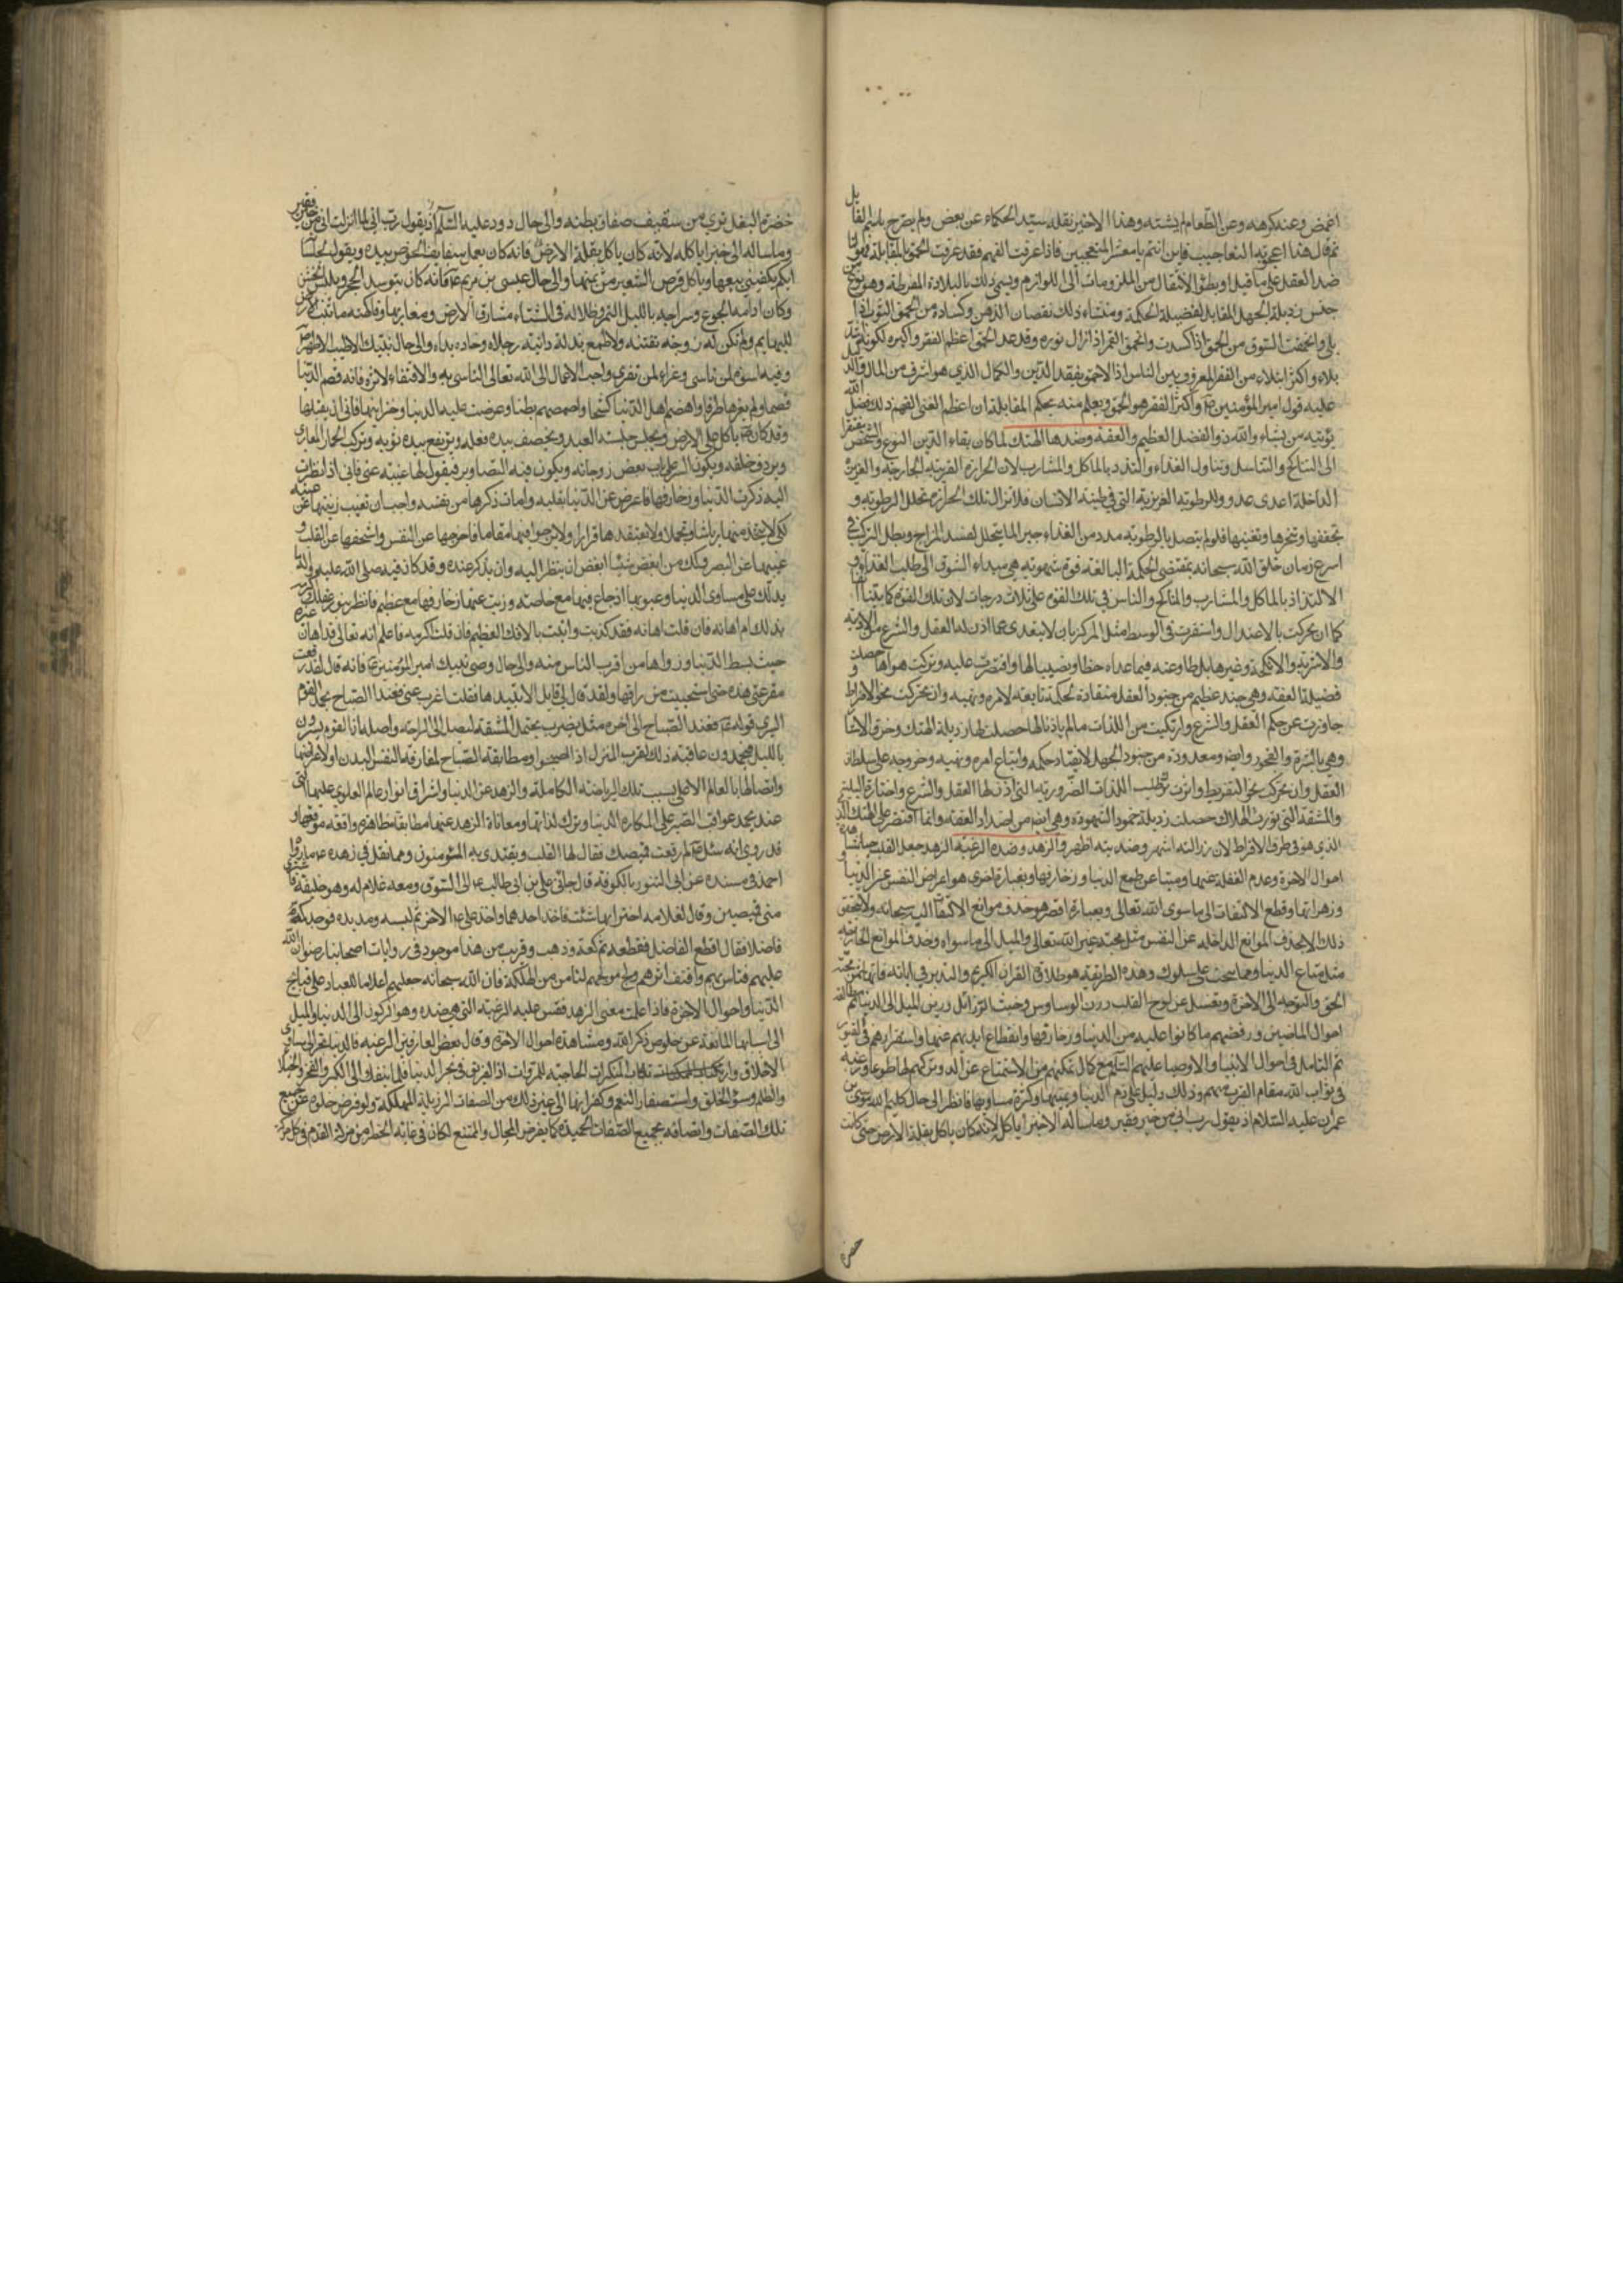 اغمض وعند كرهه وعن الطعام لم يشتهه وهذا الاخير نقله سيد الحكماء عن بعض ولم يصرح باسم القائل
ثم قال هذا اعجوبة التعاجيب فاين انتم يا معشر المتعجبين فاذا عرفت الفهم فقد عرفت الحمق بالمقابلة فهو
ضد العقل على ما قيل او بطؤ الانتقال من الملزومات الى اللوازم ويسمى ذلك بالبلادة المفرطة وهو نوع من
جنس رذيلة الجهل المقابل لفضيلة الحكمة ومنشاء ذلك نقصان الذهن وكساده من انحمق الثوب اذا
بلي وانحمقت السوق من الحمق اذا كسدت وانحمق القمر اذا زال نوره وقد عد الحمق اعظم الفقر واكبره لكونه اشد
بلاء واكثر ابتلاء من الفقر المعروف بين الناس اذ الاحمق يفقد الدين والكمال الذي هو اشرف من المال والدال
عليه قول امير المؤمنين ع واكبر الفقر هو الحمق ويعلم منه بحكم المقابلة ان اعظم الغنى الفهم ذلك فضل الله
يؤتيه من يشاء والله ذو الفضل العظيم والعفة وضدها الهتك لما كان بقاء الدين النوع والشخص مفتقرا
الى التناكح والتناسل وتناول الغذاء والتلذذ بالماكل والمشارب لان الحرارة الغريبة الخارجة والغريزة
الداخلة اعدى عدو للرطوبة الغريزية التي في طينة الانسان فلا تزال تلك الحرارة تحلل الرطوبة و
تجففها وتبخرها وتفنيها فلو لم يتصل بالرطوبة مدد من الغذاء جبر لما يتحلل لفسد المزاج وبطل التركيب في
اسرع زمان خلق الله سبحانه بمقتضى الحكمة البالغة قوة شهوية هي مبداء الشوق الى طلب الغذاء وشوق
الالتذاذ بالماكل والمشارب والمناكح والناس في تلك القوة على ثلاث درجات لان تلك القوة كما بيناه
كما ان تحركت بالاعتدال واستقرت في الوسط مثل المركز بان لا يتعدى عما اذن لها العقل والشرع من الادوية
والاشربة والانكحة وغيرها بل طاوعته فيما عداه حظا ونصيبا لها واقتصرت عليه وتركت هواها حصلت
فضيلة العفة وهي جند عظيم من جنود العقل منقادة لحكمة تابعة لامره ونهيه وان تحركت نحو الافراط و
جاوزت عن حكم العقل والشرع وارتكبت من اللذات ما لم ياذنا لها حصلت لها رذيلة الهتك وخرق الاستار
وهي بالشره والفجور وايضا معدودة من جنود الجهل لانقياد حكمه واتباع امره ونهيه وخروجه على سلطان
العقل وان تحركت نحو التفريط واثرت ترك طلب اللذات الضرورية التي اذن لها العقل والشرع واختارت البلية
والمشقة التي تورث الهلاك حصلت رذيلة خمود الشهوة وهي ايضا من اضداد العفة وانما اقتصر على الهتك الذي
الذي هو في طرف الافراط لان رذالته اشهر وضديته اظهر والزهد وضده الرغبة الزهد جعل القلب حيا بمشاهدة
احوال الاخرة وعدم الغفلة عنها وميتا عن طمع الدنيا وزخارفها وبعبارة اخرى هو اعراض النفس عن الدنيا و
وزهراتها وقطع الالتفات الى ما سوى الله تعالى وبعبارة اقصر هو حذف موانع الالتفات اليه سبحانه ولا يتحقق
ذلك الا بحذف الموانع الداخلة عن النفس مثل محبة غير الله تعالى والميل الى ما سواه وحذف الموانع الخارجة
مثل متاع الدنيا ومما يبحث على سلوك وهذه الطريقة هو طلاوة القران الكريم والتدبر في اياته فانها من محبة
الحق والتوجه الى الاخرة ويغسل عن لوح القلب درن الوساوس وخبث الرذائل ورين الميل الى الدنيا ثم مطالعة
احوال الماضين ورفضهم ما كانوا عليه من الدنيا وزخارفها وانقطاع ايديهم عنها واستقرارهم في القبور
ثم التامل في احوال الانبياء والاوصياء عليهم السلام مع كمال تمكنهم من الاستمتاع عن الدنيا وتركهم لها طوعا ورغبة
في ثواب الله مقام القرب منهم وذلك دليل على ذم الدنيا وعيبها وكثرة مساويها فانظر الى حال كليم الله موسى بن
عمران عليه السلام اذ يقول رب اني لما انزلت الي من خير فقير وما ساله الا خبزا ياكله لانه كان ياكل بقلة الارض حتى كانت
خضرة
خضرة البقل ترى من سفيف صفاق بطنه والى حال داود عليه السلام اذ يقول رب اني لما انزلت الي من خير فقير
وما ساله الا خبزا ياكله لانه كان ياكل بقلة الارض فانه كان يعمل سفايف الخوص بيده ويقول لجلسائه
ايكم يكفيني بيعها وياكل قرص الشعير من ثمنها والى حال عيسى بن مريم ع فانه كان يتوسد الحجر ويلبس الخشن
وكان ادامه الجوع وسراجه بالليل القمر وظلاله في الشتاء مشارق الارض ومغاربها وفاكهته ما تنبت الارض
للبهايم ولم تكن له زوجة تفتنه ولا طمع يذله دابته رجلاه وخادمه يداه والى حال نبيك الاطيب الاطهر ص
وفيه اسوة لمن تاسى وعزاء لمن تعزى واحب الاعمال الى الله تعالى التاسي به والاقتفاء لاثره فانه قضم الدنيا
قضما ولم يعرها طرفا واهضم اهل الدنيا كشحا واخمصهم بطنا وعرضت عليه الدنيا وخزاينها فابى ان يقبلها
وقد كان ص ياكل على الارض ويجلس جلسة العبد ويخصف بيده نعله ويرقع بيده ثوبه ويركب الحمار العاري
ويردف خلفه ويكون الستر على باب بعض زوجاته ويكون فيه التصاوير فيقول لها غيبيه عني فاني اذا نظرت
اليه ذكرت الدنيا وزخارفها فاعرض عن الدنيا بقلبه وامات ذكرها من نفسه واحب ان تغيب زينتها عن عينه
لكي لا يتخذ منها رياشا وتجملا ولا يعتقدها قرارا ولا يرجو فيها مقاما فاخرجها عن النفس واشخصها عن القلب و
غيبها عن البصر وكذلك من ابغض شيئا ابغض ان ينظر اليه وان يذكر عنده وقد كان فيه صلى الله عليه واله ما
يدلك على مساوى الدنيا وعيوبها اذ جاع فيها مع خاصته وزويت عنه زخارفها مع عظيم فانظر بنور عقلك اكرمه
بذلك ام اهانه فان قلت اهانه فقد كذبت واتيت بالافك العظيم فان قلت اكرمه فاعلم انه تعالى قد اهان غيره
حيث بسط الدنيا وزواها من اقرب الناس منه والى حال وصي نبيك امير المؤمنين ع فانه قال لقد رقعت
مدرعتي هذه حتى استحييت من راقعها ولقد قال لي قايل الا تنبذها فقلت اغرب عني فعند الصباح يحمد القوم
السرى قوله ع فعند الصباح الى اخره مثل يضرب بمحتمل المشقة ليصل الى الراحة واصله ان القوم يسيرون
بالليل فيحمدون عاقبة ذلك لقرب المنزل اذا اصبحوا ومطابقة الصباح لمفارقة النفس البدن او لاعراضها
واتصالها بالعالم الاعلى بسبب تلك الرياضة الكاملة والزهد عن الدنيا واشراق انوار عالم العلوي عليها التي
عند يحمد عواقب الصبر على المكاره الدنيا وترك لذاتها ومعاناة الزهد عنها مطابقة ظاهرة واقعة موقعها و
قد روي انه سئل ع لم رقعت قميصك فقال لها القلب ويقتدي به المؤمنون ومما نقل في زهده ع ما رواه
احمد في مسنده عن ابي التنور بالكوفة قال جائني علي بن ابي طالب ع الى السوق ومعه غلام له وهو خليفة فاشترى
مني قميصين وقال لغلامه اختر ايهما شئت فاخذ احدهما واخذ علي ع الاخر ثم لبسه ومد يده فوجد كمه
فاضلا فقال اقطع الفاضل فقطعه ثم كفه وذهب وقريب من هذا موجود في روايات اصحابنا رضوان الله
عليهم فتاس بهم واقتف اثرهم ولج مولجهم لتامن من الهلكة فان الله سبحانه جعلهم اعلاما للعباد على قبايح
الدنيا واحوال الاخرة فاذا علمت معنى الزهد فقس عليه الرغبة التي هي ضده وهو الركون الى الدنيا والميل
الى اسبابها المانعة عن خلوص ذكر الله ومشاهدة احوال الاخرة وقال بعض العارفين الرغبة في الدنيا تجر الى مساوي
الاخلاق وارتكاب المنكرات الحاجبة للمروات اذ الغريق في بحر الدنيا قلما ينفك الى الكبر والفخر والخيلاء
والظلم وسوء الخلق واستصغار النعم وكفرانها الى غير ذلك من الصفات الرذيلة المهلكة ولو فرض خلوه عن جميع
تلك الصفات واتصافه بجميع الصفات الحميدة كما يفرض المحال والممتنع لكان في غاية الخطر من مزلة القدم في كل حركة